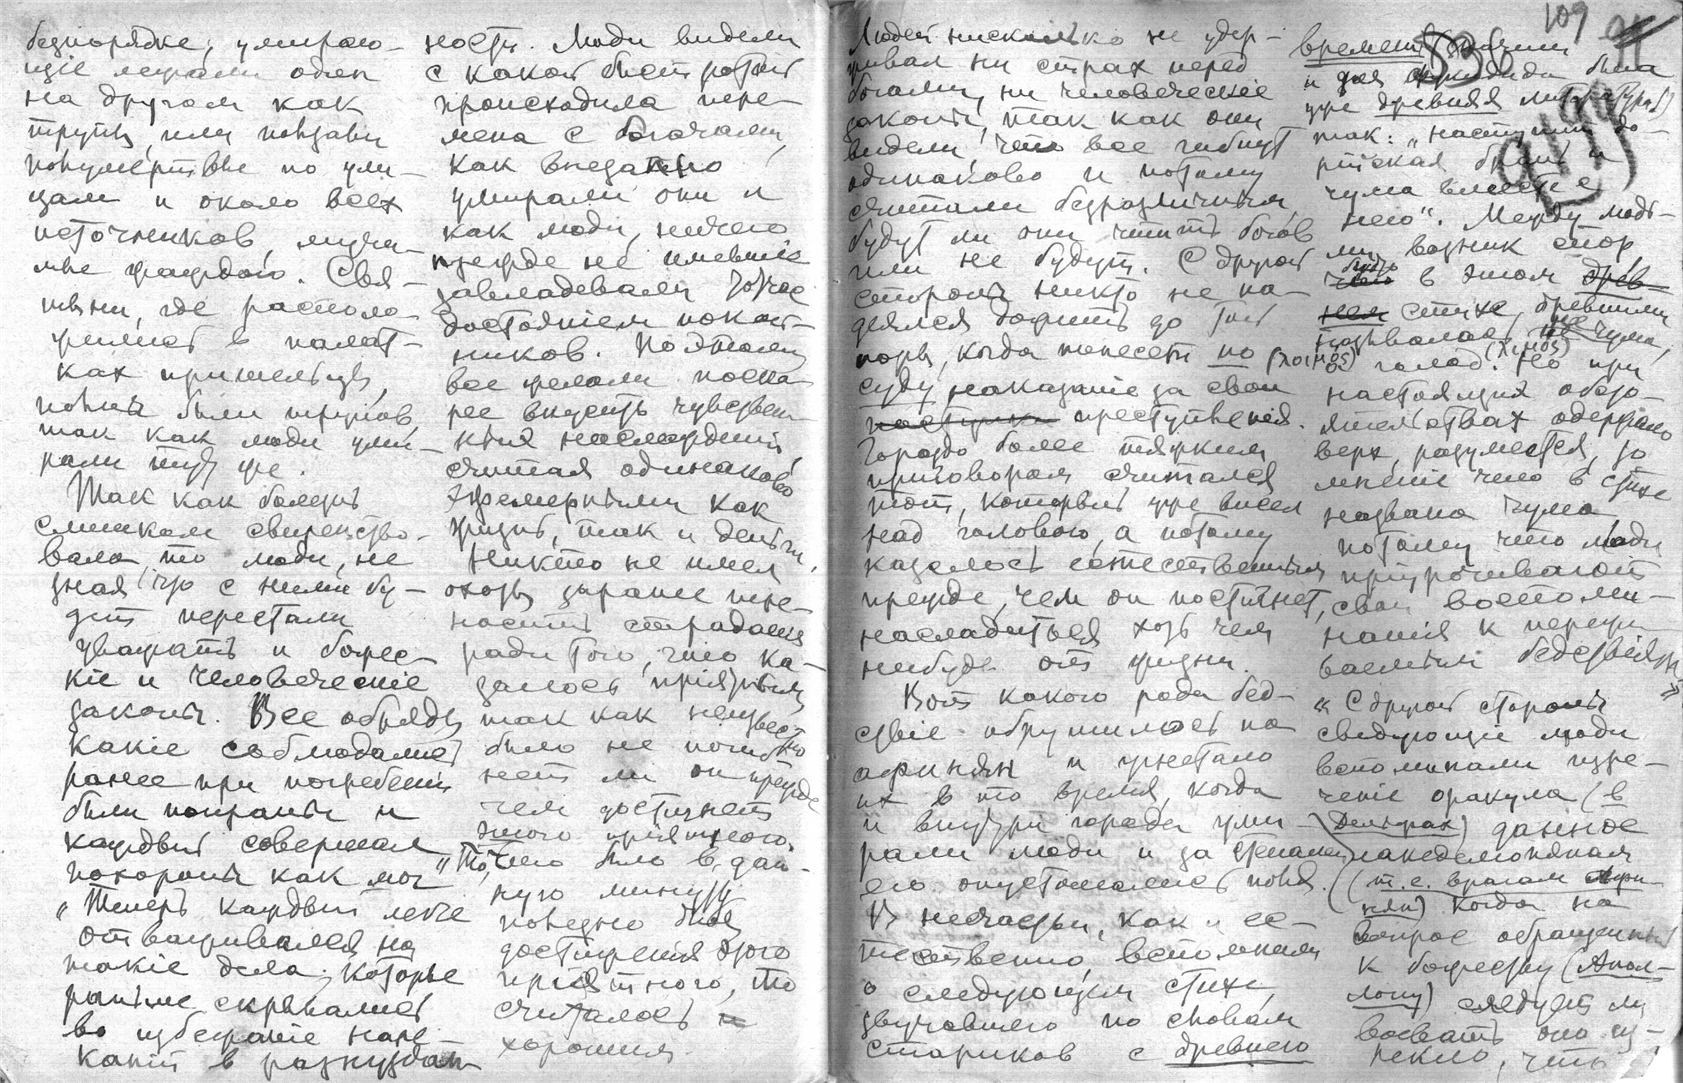 безпорядке, умираю-
щіе лежали один
на другом как
трупы, или ползали
полумертвые по ули-
цам и около всех
источников, мучи-
мые жаждою. Свя-
тыни, где располо-
жились в палат-
ках пришельцы,
полны были трупов,
так как люди уми-
рали тут же.
Так как болезнь
слишком свирепство-
вала, то люди, не
зная что с ними бу-
дет перестали
уважать и божес-
кіе и человеческіе
законы. Все обряды
какіе соблюдались
ранее при погребеніи
были попраны и
каждый совершал
похороны как мог
„Теперь каждый легче
отваживался на
такіе дела, которые
раньше скрывались
во избежаніе наре-
каній в разнуздан-
ности. Люди видели
с какой быстротой
происходила пере-
мена с богачами,
как внезапно
умирали они и
как люди, ничего
прежде не имевшіе
завладевали тотчас
достояніем покой-
ников. Поэтому
все желали поско-
рее вкусить чувствен-
ных наслаждений,
считая одинаково
эфемерными как
жизнь, так и деньги.
Никто не имел
охоты заранее пере-
носить страдания
ради того, что ка-
залось пріятным
так как неизвестно
было не погиб-
нет ли он прежде
чем достигнет
этого пріятного.
„То, что было в дан-
ную минуту
полезно для
достиженія этого
пріятного, то
считалось и
хорошим.
Людей нисколько не удер-
живал ни страх перед
богами, ни человеческіе
законы, так как они
видели, что все гибнут
одинаково и потому
считали безразличным,
будут ли они чтить богов
или не будут. С другой
стороны никто не на-
деялся дожить до той
поры, когда понесет по
суду наказаніе за свои
поступки преступленія.
Гораздо более тяжким
приговором считался
тот, который уже висел
над головою, а потому
казалось естественным
прежде, чем он постигнет,
насладиться хоть чем
нибудь от жизни.
Вот какого рода бед-
ствіе обрушилось на
афинян и угнетало
их в то время, когда
и внутри города уми-
рали люди и за стенами
его опустошались поля.
В несчастьи, как и ес-
тественно, вспомнили
о следующем стихе,
звучавшем по словам
стариков с древнего
109
времени
и для Фукидида была
уже древняя
так: „наступит до-
рійская брань и
чума вместе с
нею“. Между людь-
ми возник спор
будто в этом древ-
нем стихе, древними
называлась не чума,
(λοιμός) голод (λιμός). Но при
настоящих обсто-
ятельствах одержало
верх, разумеется, то
мненіе что в стихе
названа чума
потому что люди
приурочивают
свои воспоми-
нанія к пережи-
ваемым бедствіям»
«С другой стороны
сведующіе люди
вспоминали изре-
ченіе оракула (в
Дельфах) данное
лакедемонянам
(т.е. врагам афи-
нян) когда на
вопрос обращенный
к божеству (Апол-
лону) следует ли
воевать оно из-
рекло, что